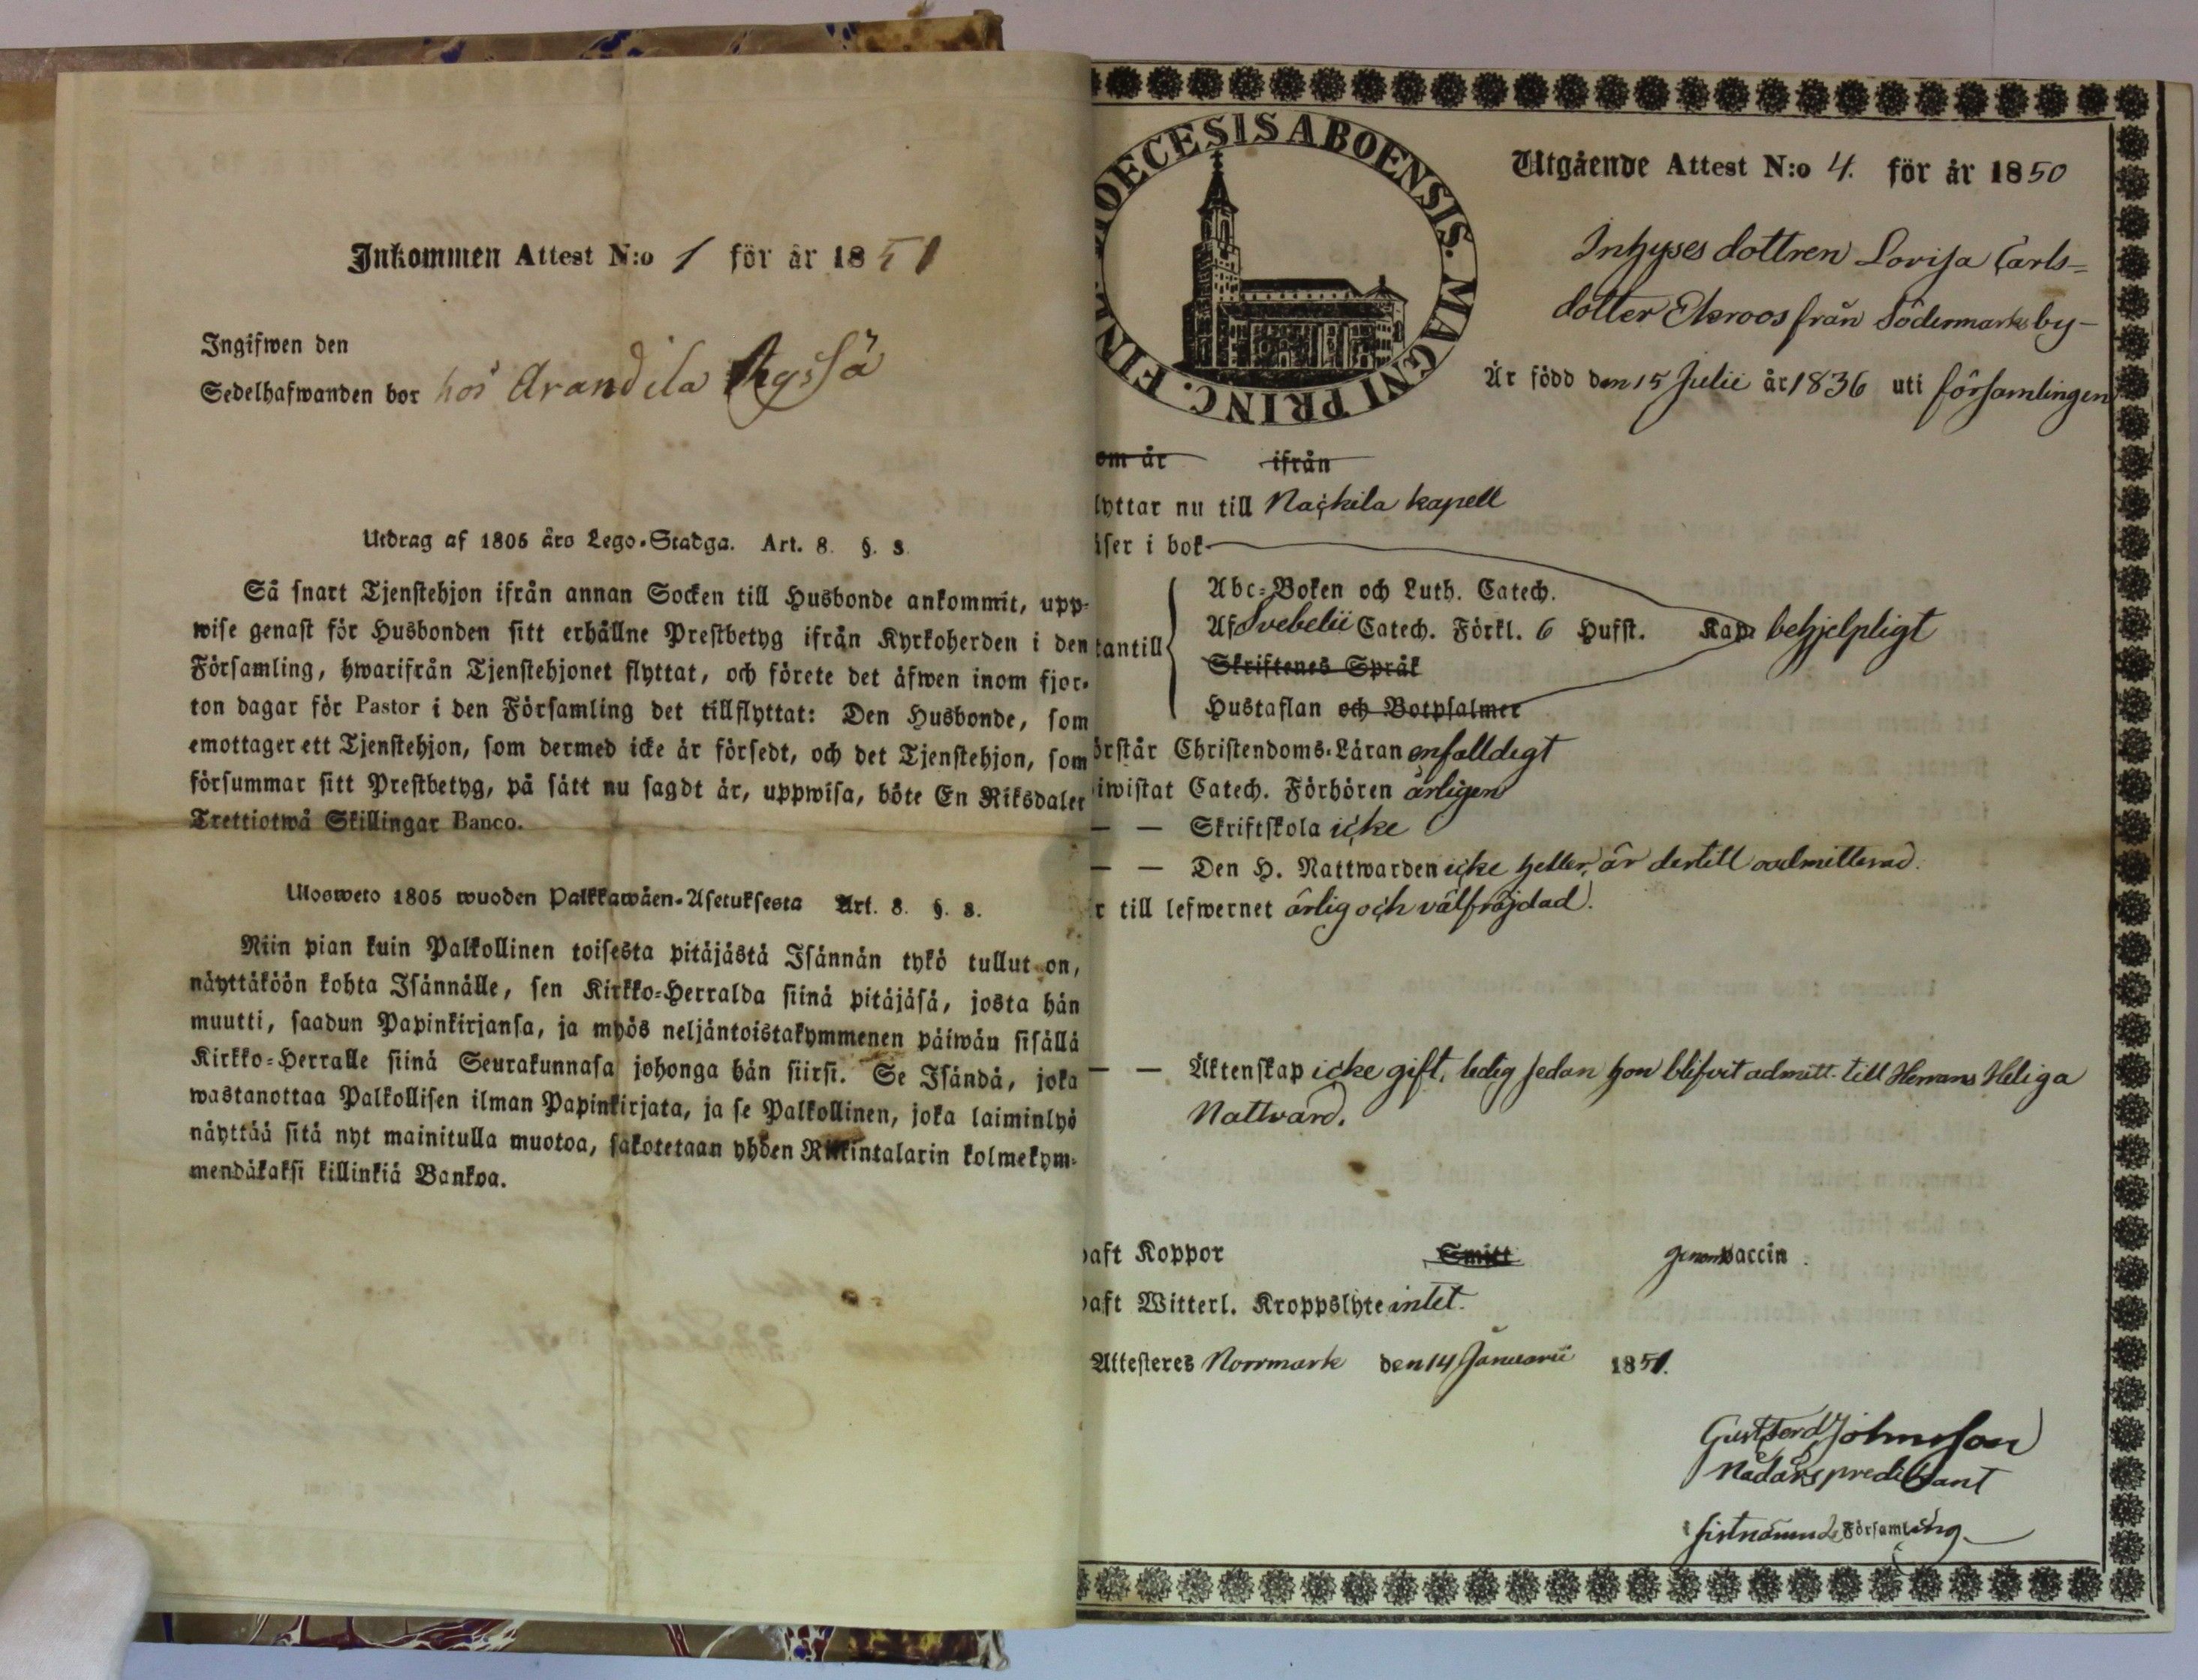 Inkommen Attest N:o 1 för år 1851
Ingifwen den
Sedelhafwanden bor hos
Utdrag af 1805 års Lego-Stadga. Art. 8. §. 8.
Så snart Tjenstehjon ifrån annan Socken till Husbonde ankommit, upp-
wise genast för Husbonden sitt erhållne Prestbetyg ifrån Kyrkoherden i den
Församling, hwarifrån Tjenstehjonet flyttat, och förete det äfwen inom fjor-
ton dagar för Pastor i den Församling det tillflyttat: Den Husbonde, som
emottager ett Tjenstehjon, som dermed icke är försedt, och det Tjenstehjon, som
försummar sitt Prestbetyg, på sätt nu sagdt är, uppwisa, böte En Riksdaler
Trettiotwå Skillingar Banco.
Ulosweto 1805 wuoden Palkkawäen-Asetuksesta Art. 8. §. 8.
Niin pian kuin Palkollinen toisesta pitäjästä Isännän tykö tullut on,
näyttäköön kohta Isännälle, sen Kirkko-Herralda siinä pitäjäsä, josta hän
muutti, saadun Papinkirjansa, ja myös neljäntoistakymmenen päiwän sisällä
Kirkko-Herralle siinä Seurakunnasa johonga hän siirsi. Se Isändä, joka
wastanottaa Palkollisen ilman Papinkirjata, ja se Palkollinen, joka laiminlyö
näyttää sitä nyt mainitulla muotoa, sakotetaan yhden Riikintalarin kolmekym-
mendäkaksi killinkiä Bankoa.
OECESIS ABOENSIS. MAGNI PRINC. FINL
Utgående Attest N:o 4. för år 1850
Inhyses dottren Lovisa Carls=
dotter Ekroos från Södermarks by-
Är född den 15 Julii år 1836 uti församlingen
om år ifrån
lyttar nu till Nackila kapell
äser i bok
Abc-Boken och Luth. Catech.
tantill Af Svebelii Catech. Förkl. 6 Hufst. Kap. behjelpligt
Skriftenes Språk
Hustaflan och Botpsalmer
örstår Christendoms-Läran enfalldigt
iwistat Catech. Förhören årligen
— — Skriftskola icke
— — Den H. Nattwarden icke heller, är dertill oadmitterad.
r till lefwernet ärlig och välfräjdad.
— — Äktenskap icke gift, ledig sedan hon blifvit admitt. till Herrans Heliga
Nattvard.
haft Koppor Smitt genom vaccin.
haft Witterl. Kroppslyte intet.
Attesteres Norrmark den 14 Januarii 1851.
Gust Ferd Johnsson
Nådårspredikant
i sistnämnde Församling